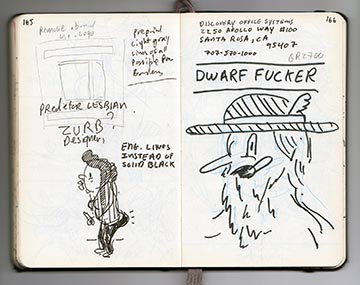 165
Remove, brand
Preprint
light gray
lines of all
Possible
Borders
Predator Lesbian
?
ZURB
Designer
ENG. LINES
INSTEAD OF
SOLID BLACK
166
DISCOVERY OFFICE SYSTEMS
2250 APOLLO WAY #100
SANTA ROSA, CA
95407
707-570-1000
GR2700
DWARF FUCKER